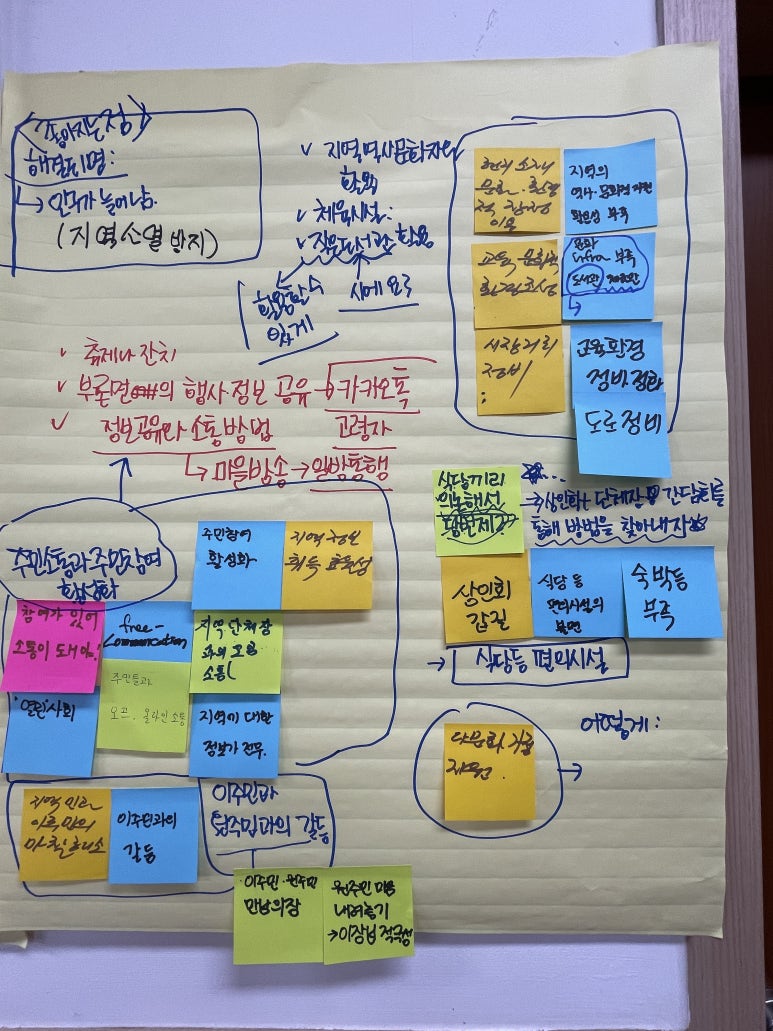 <좋아지는 점>
해결되면:
→ 인구가 늘어남.
(지역소멸 방지)
✓ 지역역사문화자원
활용
✓ 체육시설:
✓ 작은도서관 활용
활용할 수
있게
시에 요구
문화 환경
지역의
역사·문화적 자원
활용성 부족
교육, 문화적
환경조성
문화
infra 부족
도서관
시장거리
정비
교육환경
정비·정화
도로정비
✓ 축제나 잔치
✓ 부론면의 행사 정보 공유 → 카카오톡
✓ 정보공유와 소통방법
고령자
↳ 마을방송 → 일방통행
주민소통과 주민참여
활성화
주민참여
활성화
지역
취득 효율성
참여가 있어
소통이 돼야.
free-
communication
지역 단체장
과의 모임
소통
"열린"사회
주민들과
오프. 온라인 소통
지역에 대한
정보가 전무.
식당끼리
의논해서
→ 상인회는 단체장 간담회를
통해 방법을 찾아내자
상인회
갑질
식당 등
편의시설의
불편
숙박등
부족
→ 식당등 편의시설
다문화 가족
지원.
→
어떻게:
지역민과
이주민의
마찰해소
이주민과의
갈등
이주민과
원주민과의 갈등
·이주민·원주민
만남의장
원주민 마음
내려놓기
→이장님 적극성